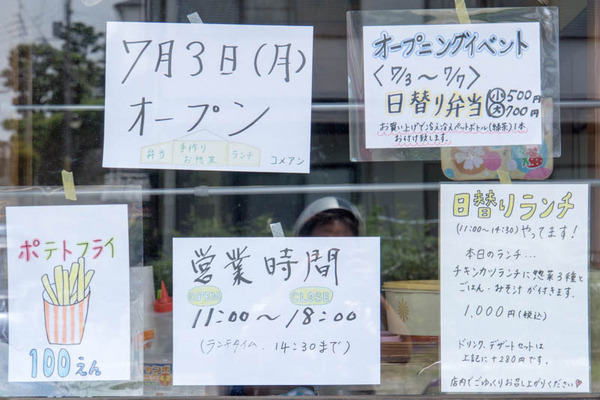 7月3日(月)
オープン
弁当
手作り
お惣菜
ランチ
コメアン
オープニングイベント
<7/3～7/7>
日替り弁当 小 500円
大 700円
お買い上げで冷え冷えペットボトル(緑茶)1本
お付け致します。
ポテトフライ
100えん
営業時間
OPEN
CLOSE
11:00～18:00
(ランチタイム、14:30まで)
日替りランチ
(11:00～14:30)やってます!
本日のランチ...
チキンカツランチに惣菜3種と
ごはん・みそ汁が付きます。
1,000円(税込)
ドリンク、デザートセットは
上記に+280円です。
店内でごゆっくりお召し上がりください